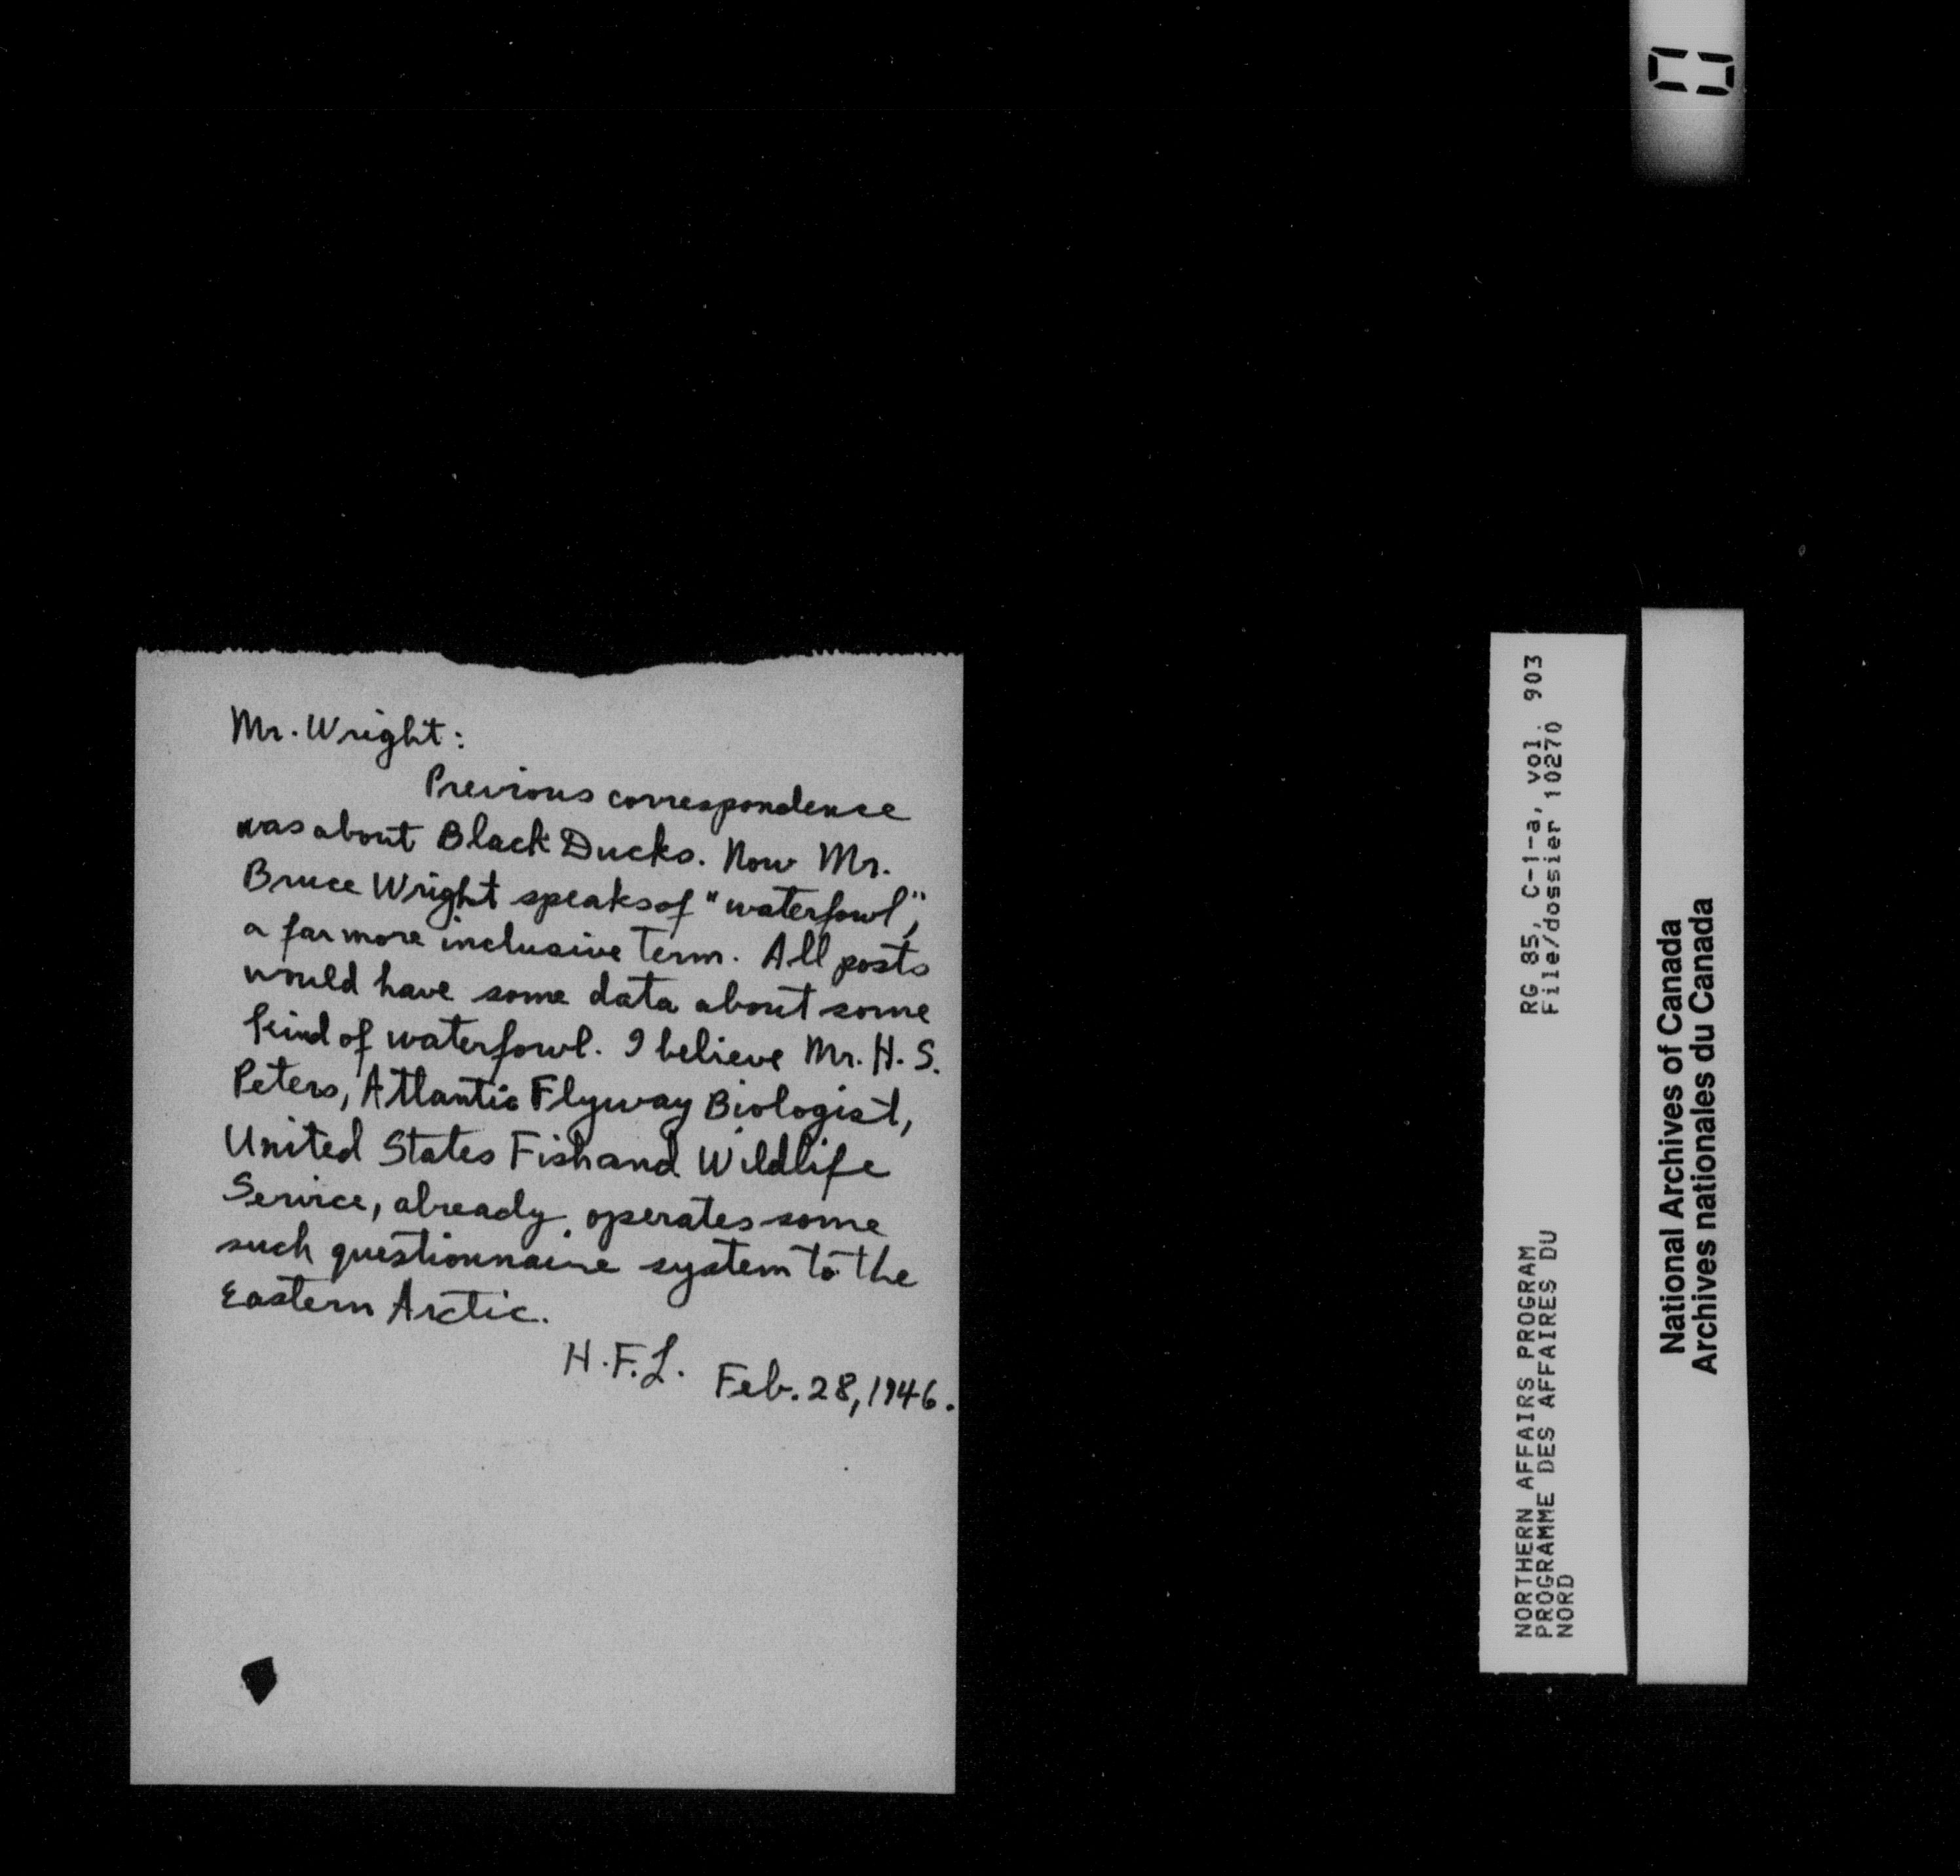 Mr. Wright:
Previous correspondence
was about Black Ducks. Now Mr.
Bruce Wright speaks of "waterfowl",
a far more inclusive term. All posts
would have some data about some
kind of waterfowl. I believe Mr. H. S.
Peters, Atlantic Flyway Biologist,
United States Fish and Wildlife
Service, already operates some
such questionnaire system to the
Eastern Arctic.
H.F.L. Feb. 28, 1946.
RG 85, C-1-a, vol. 903
File/dossier 10270
NORTHERN AFFAIRS PROGRAM
PROGRAMME DES AFFAIRES DU
NORD
National Archives of Canada
Archives nationales du Canada